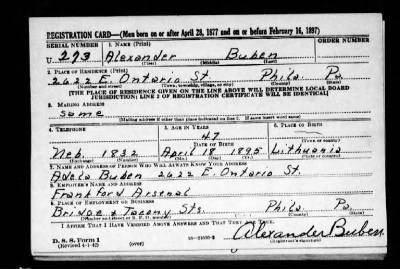 REGISTRATION CARD—(Men born on or after April 28, 1877 and on or before February 16, 1897)
SERIAL NUMBER 1. NAME (Print) ORDER NUMBER
U. 273 Alexander Buben
(First) (Middle) (Last)
2. PLACE OF RESIDENCE (Print)
2622 E. Ontario St Phila Pa.
(Number and street) (Town, township, village, or city) (County) (State)
[THE PLACE OF RESIDENCE GIVEN ON THE LINE ABOVE WILL DETERMINE LOCAL BOARD
JURISDICTION; LINE 2 OF REGISTRATION CERTIFICATE WILL BE IDENTICAL]
3. MAILING ADDRESS
Same
[Mailing address if other than place indicated on line 2. If same insert word same]
4. TELEPHONE 5. AGE IN YEARS 6. PLACE OF BIRTH
47
DATE OF BIRTH
Neb. 1832 April 18 1895 Lithuania
(Exchange) (Number) (Mo.) (Day) (Yr.) (State or country)
7. NAME AND ADDRESS OF PERSON WHO WILL ALWAYS KNOW YOUR ADDRESS
Adela Buben 2622 E. Ontario St.
8. EMPLOYER'S NAME AND ADDRESS
Frankford Arsenal
9. PLACE OF EMPLOYMENT OR BUSINESS
Bridge & Tacony Sts. Phila Pa.
(Number and street or R. F. D. number) (Town) (County) (State)
I AFFIRM THAT I HAVE VERIFIED ABOVE ANSWERS AND THAT THEY ARE TRUE.
D. S. S. Form 1
(Revised 4-1-42) (over) Alexander Buben
(Registrant's signature)